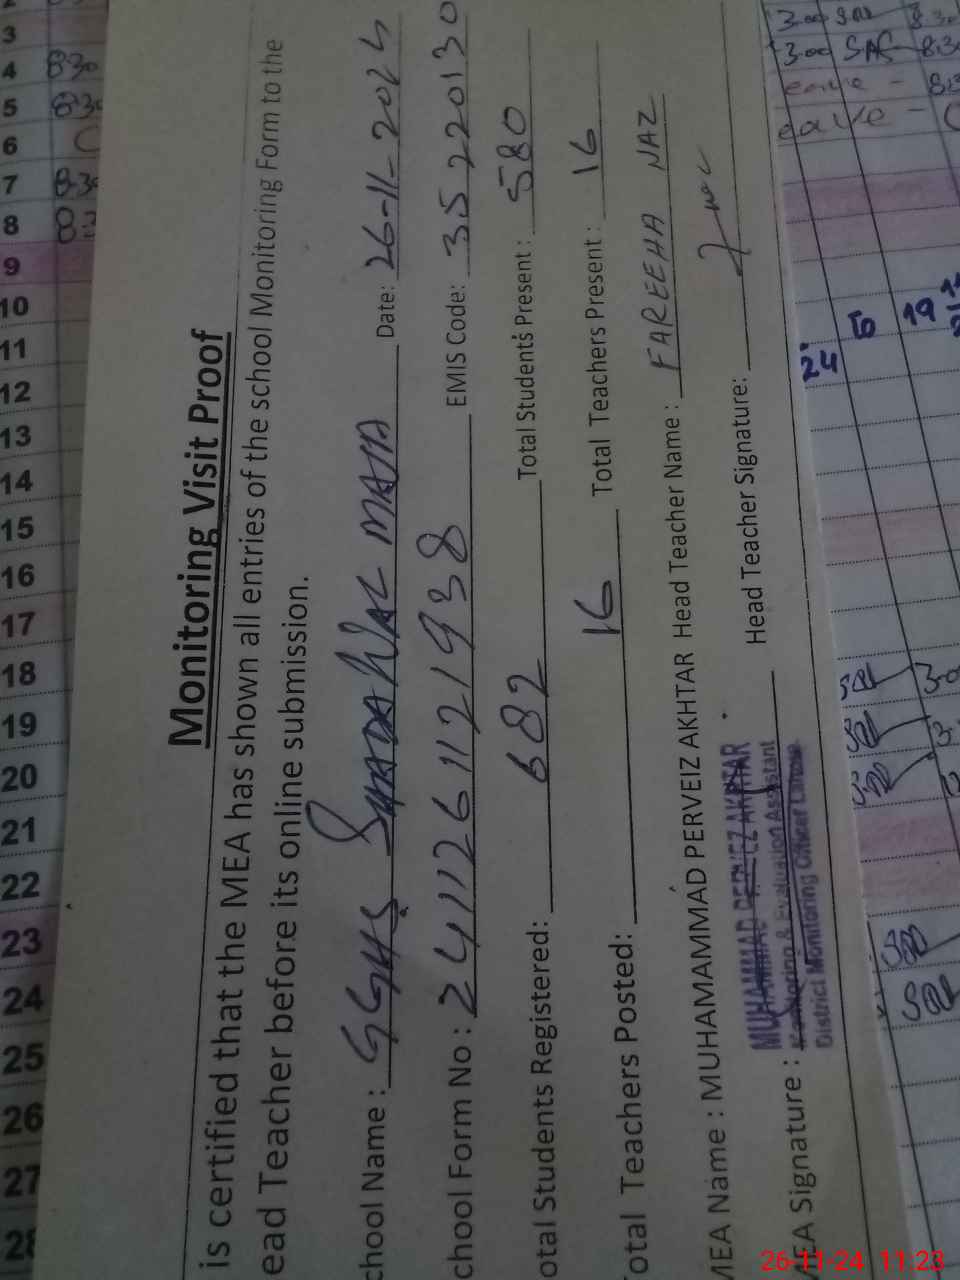 Monitoring Visit Proof
is certified that the MEA has shown all entries of the school Monitoring Form to the
ead Teacher before its online submission.
chool Name : GGHS MAJA Date: 26-11-2024
chool Form No : 2411261121938 EMIS Code: 35220130
otal Students Registered: 682 Total Students Present: 580
otal Teachers Posted: 16 Total Teachers Present: 16
MEA Name : MUHAMAMMAD PERVEIZ AKHTAR Head Teacher Name : FAREEHA NAZ
MEA Signature : Head Teacher Signature:
MUHAMMAD PERVIEZ AKHTAR
Monitoring & Evaluation Assistant
District Monitoring Officer Lahore
3
4 8:30
5 8:30
6
7 8:30
8
9
10
11
12
13
14
15
16
17
18
19
20
21
22
23
24
25
26
27
28
3:00
3:00
eave
eave
24 To 19
26-11-24 11:23